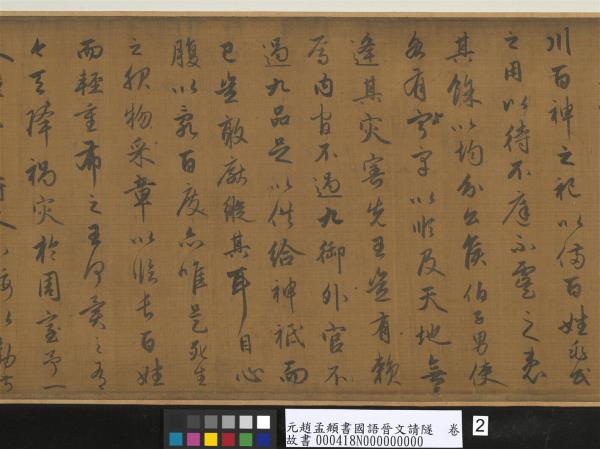 川百神之祀以備百姓兆民
之用以待不庭不虞之患
其餘以均分公侯伯子男使
各有寧宇以順及天地無
逢其災害先王豈有賴
焉內官不過九御外官不
過九品足以供給神祇而
已豈敢厭縱其耳目心
腹以亂百度亦唯是死生
之服物采章以臨長百姓
而輕重布之王何異之有
今天降禍災於周室予一
元趙孟頫書國語晉文請隧 卷
故書 000418N000000000
2